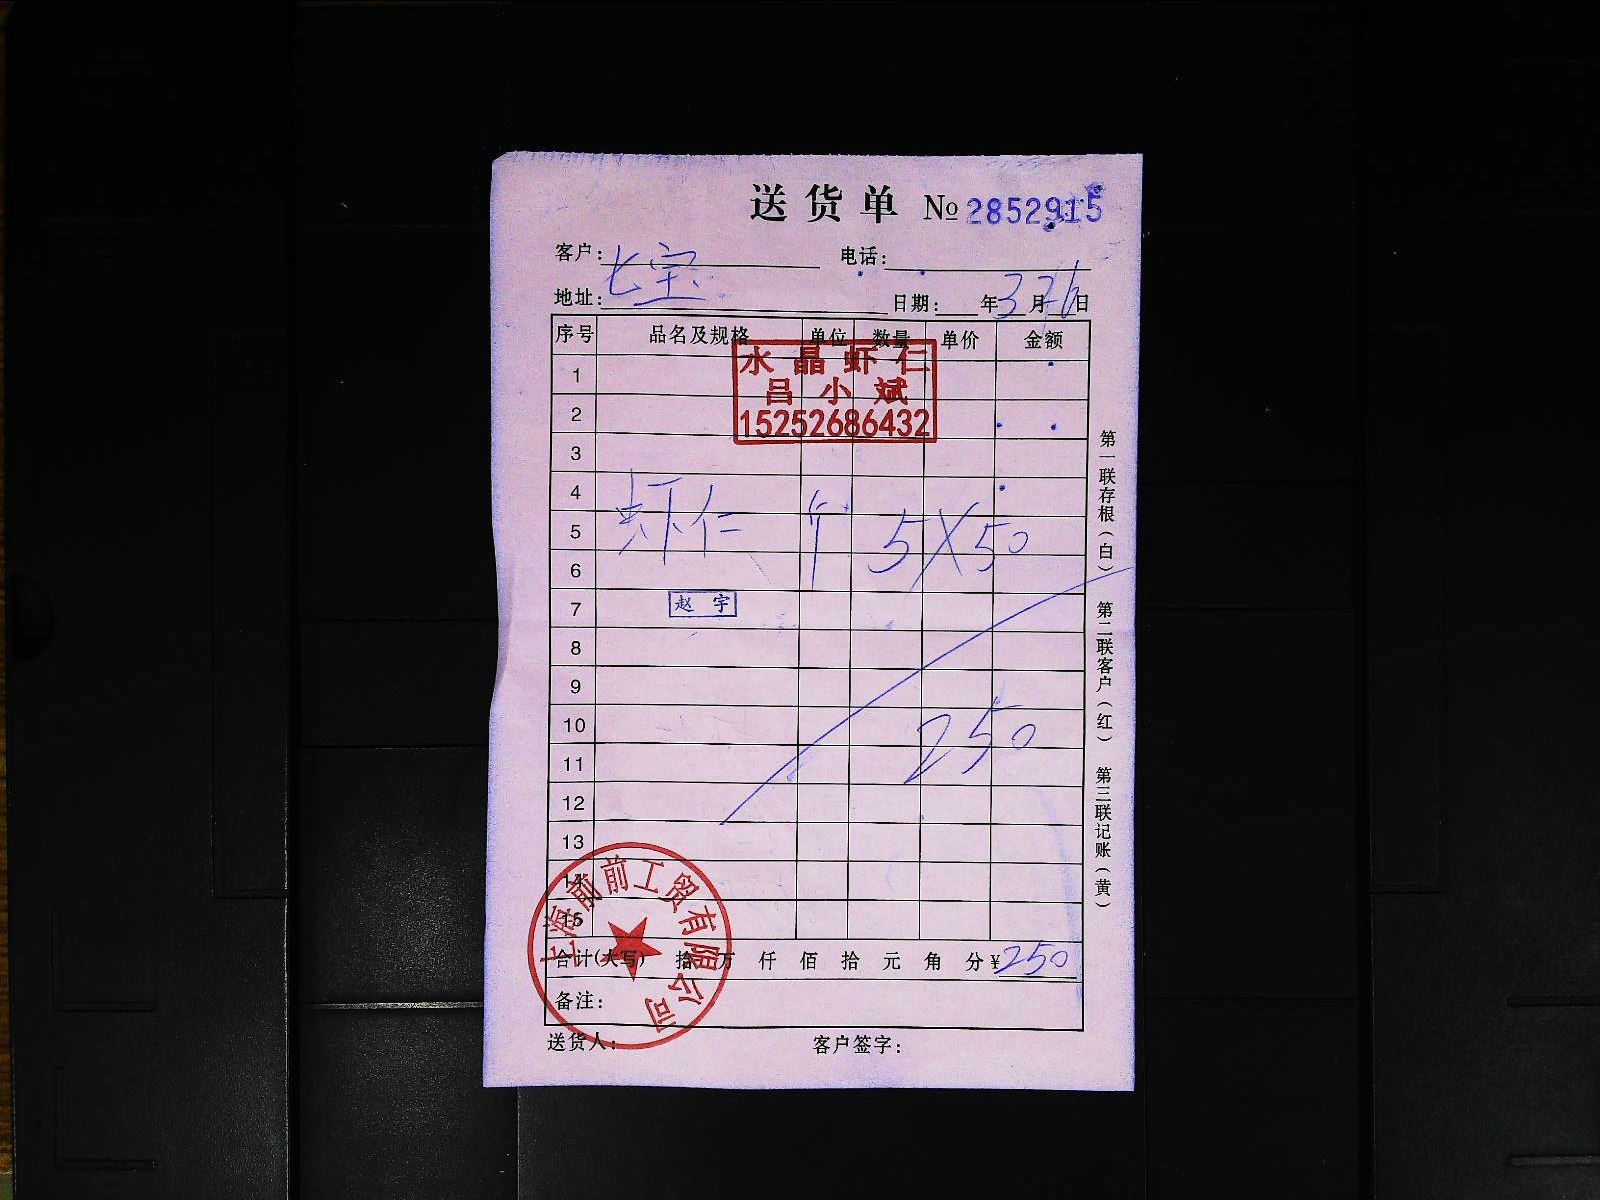 送货单 №2852915
客户： 七宝 电话：
地址： 日期： 年3月26日
序号 品名及规格 单位 数量 单价 金额
水晶虾仁
吕小斌
15252686432
1
2
3
4
5 虾仁 5X50
6
7 赵宇
8
9
10 250
11
12
13
14
15
合计(大写) 拾 万 仟 佰 拾 元 角 分 ¥250
备注：
送货人： 客户签字：
上海前前工贸有限公司
第一联存根（白） 第二联客户（红） 第三联记账（黄）